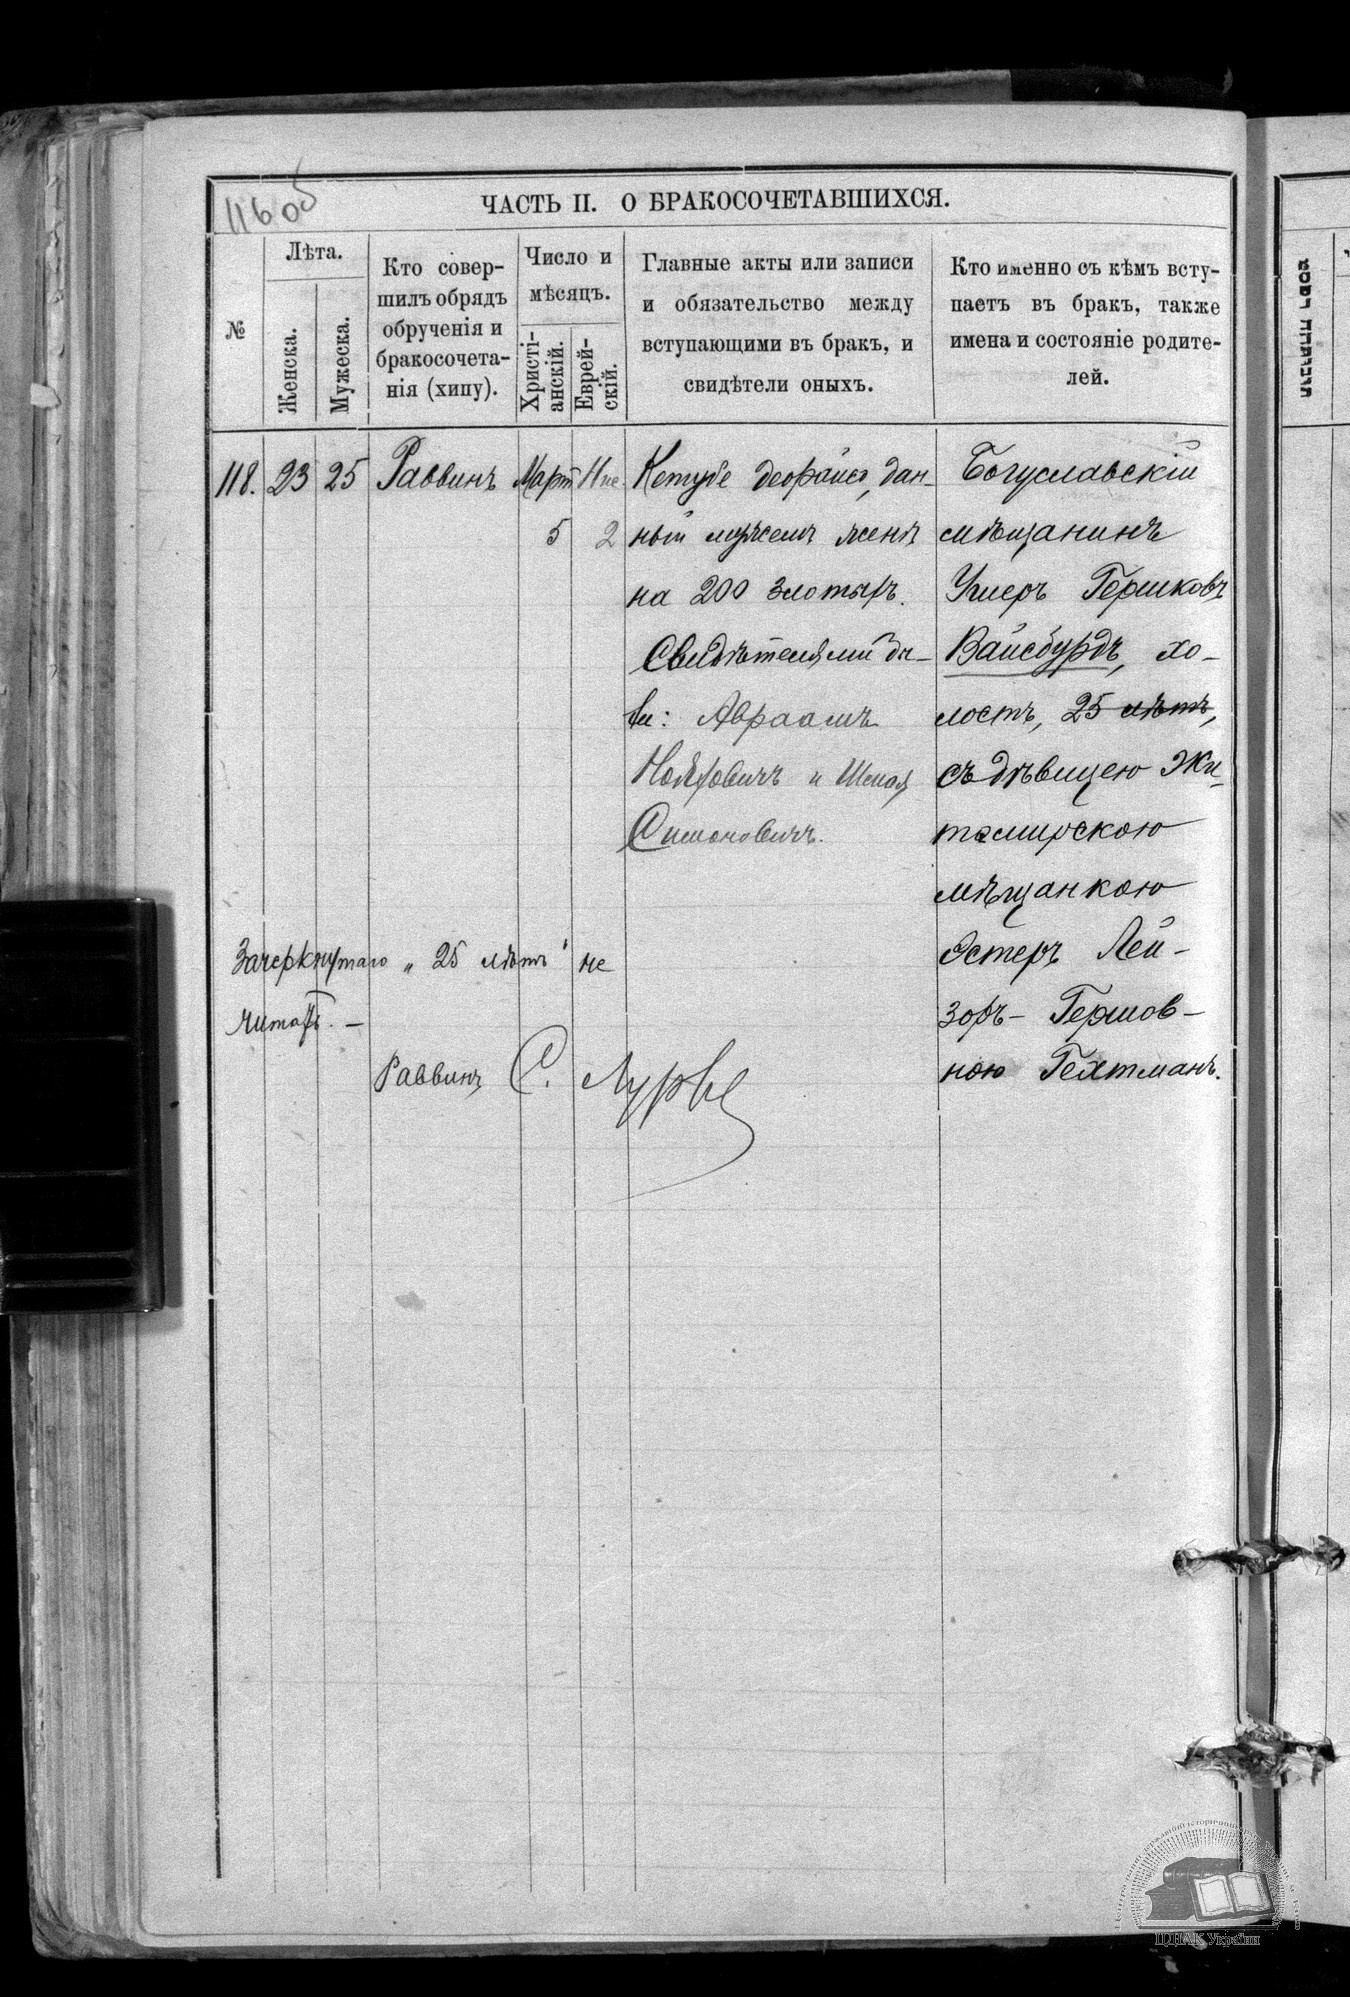 116 об
ЧАСТЬ II. О БРАКОСОЧЕТАВШИХСЯ.
№
Лѣта.
Женска.
Мужеска.
Кто совер-
шилъ обрядъ
обрученія и
бракосочета-
нія (хипу).
Число и
мѣсяцъ.
Христі-
анскій.
Еврей-
скій.
Главные акты или записи
и обязательство между
вступающими въ бракъ, и
свидѣтели оныхъ.
Кто именно съ кѣмъ всту-
паетъ въ бракъ, также
имена и состояніе родите-
лей.
118. 23 25 Раввинъ Март 5 2
Кетубе деорайсо, дан-
ный мужемъ женѣ
на 200 злотыхъ.
Свидѣтелями бы-
ли: Авраамъ
и Шмая
Симоновичъ.
Богуславскій
мѣщанинъ
Ушеръ Гершковъ
Вайсбурдъ, хо-
лостъ, 25 лѣтъ,
съ дѣвицею Жи-
томирскою
мѣщанкою
Эстеръ Лей-
зоръ- Гершов-
ною Гехтманъ.
Зачеркнутаго „25 лѣтъ" не
читать. —
Раввинъ С. Лурье
ЦДІАК України